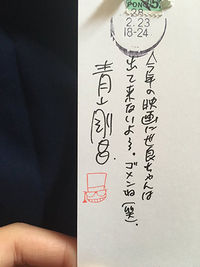 PON
28
2.23
18-24
今年の映画に世良ちゃんは
出て来ないよ〜。ゴメンね(笑).
青山剛昌.